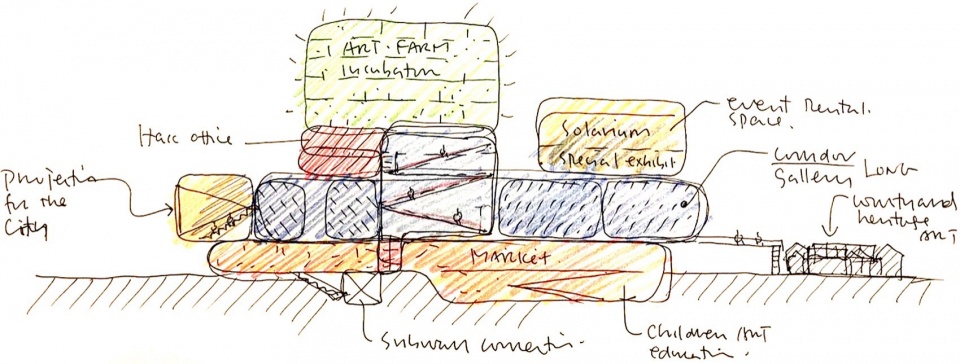 ART FARM
Incubator
office
event Rental
space.
Solarium
Special exhibit
Projection
for the
City
corridor
Gallery LONG
courtyard
heritage
ART
MARKET
Subway connection
Children ART
education